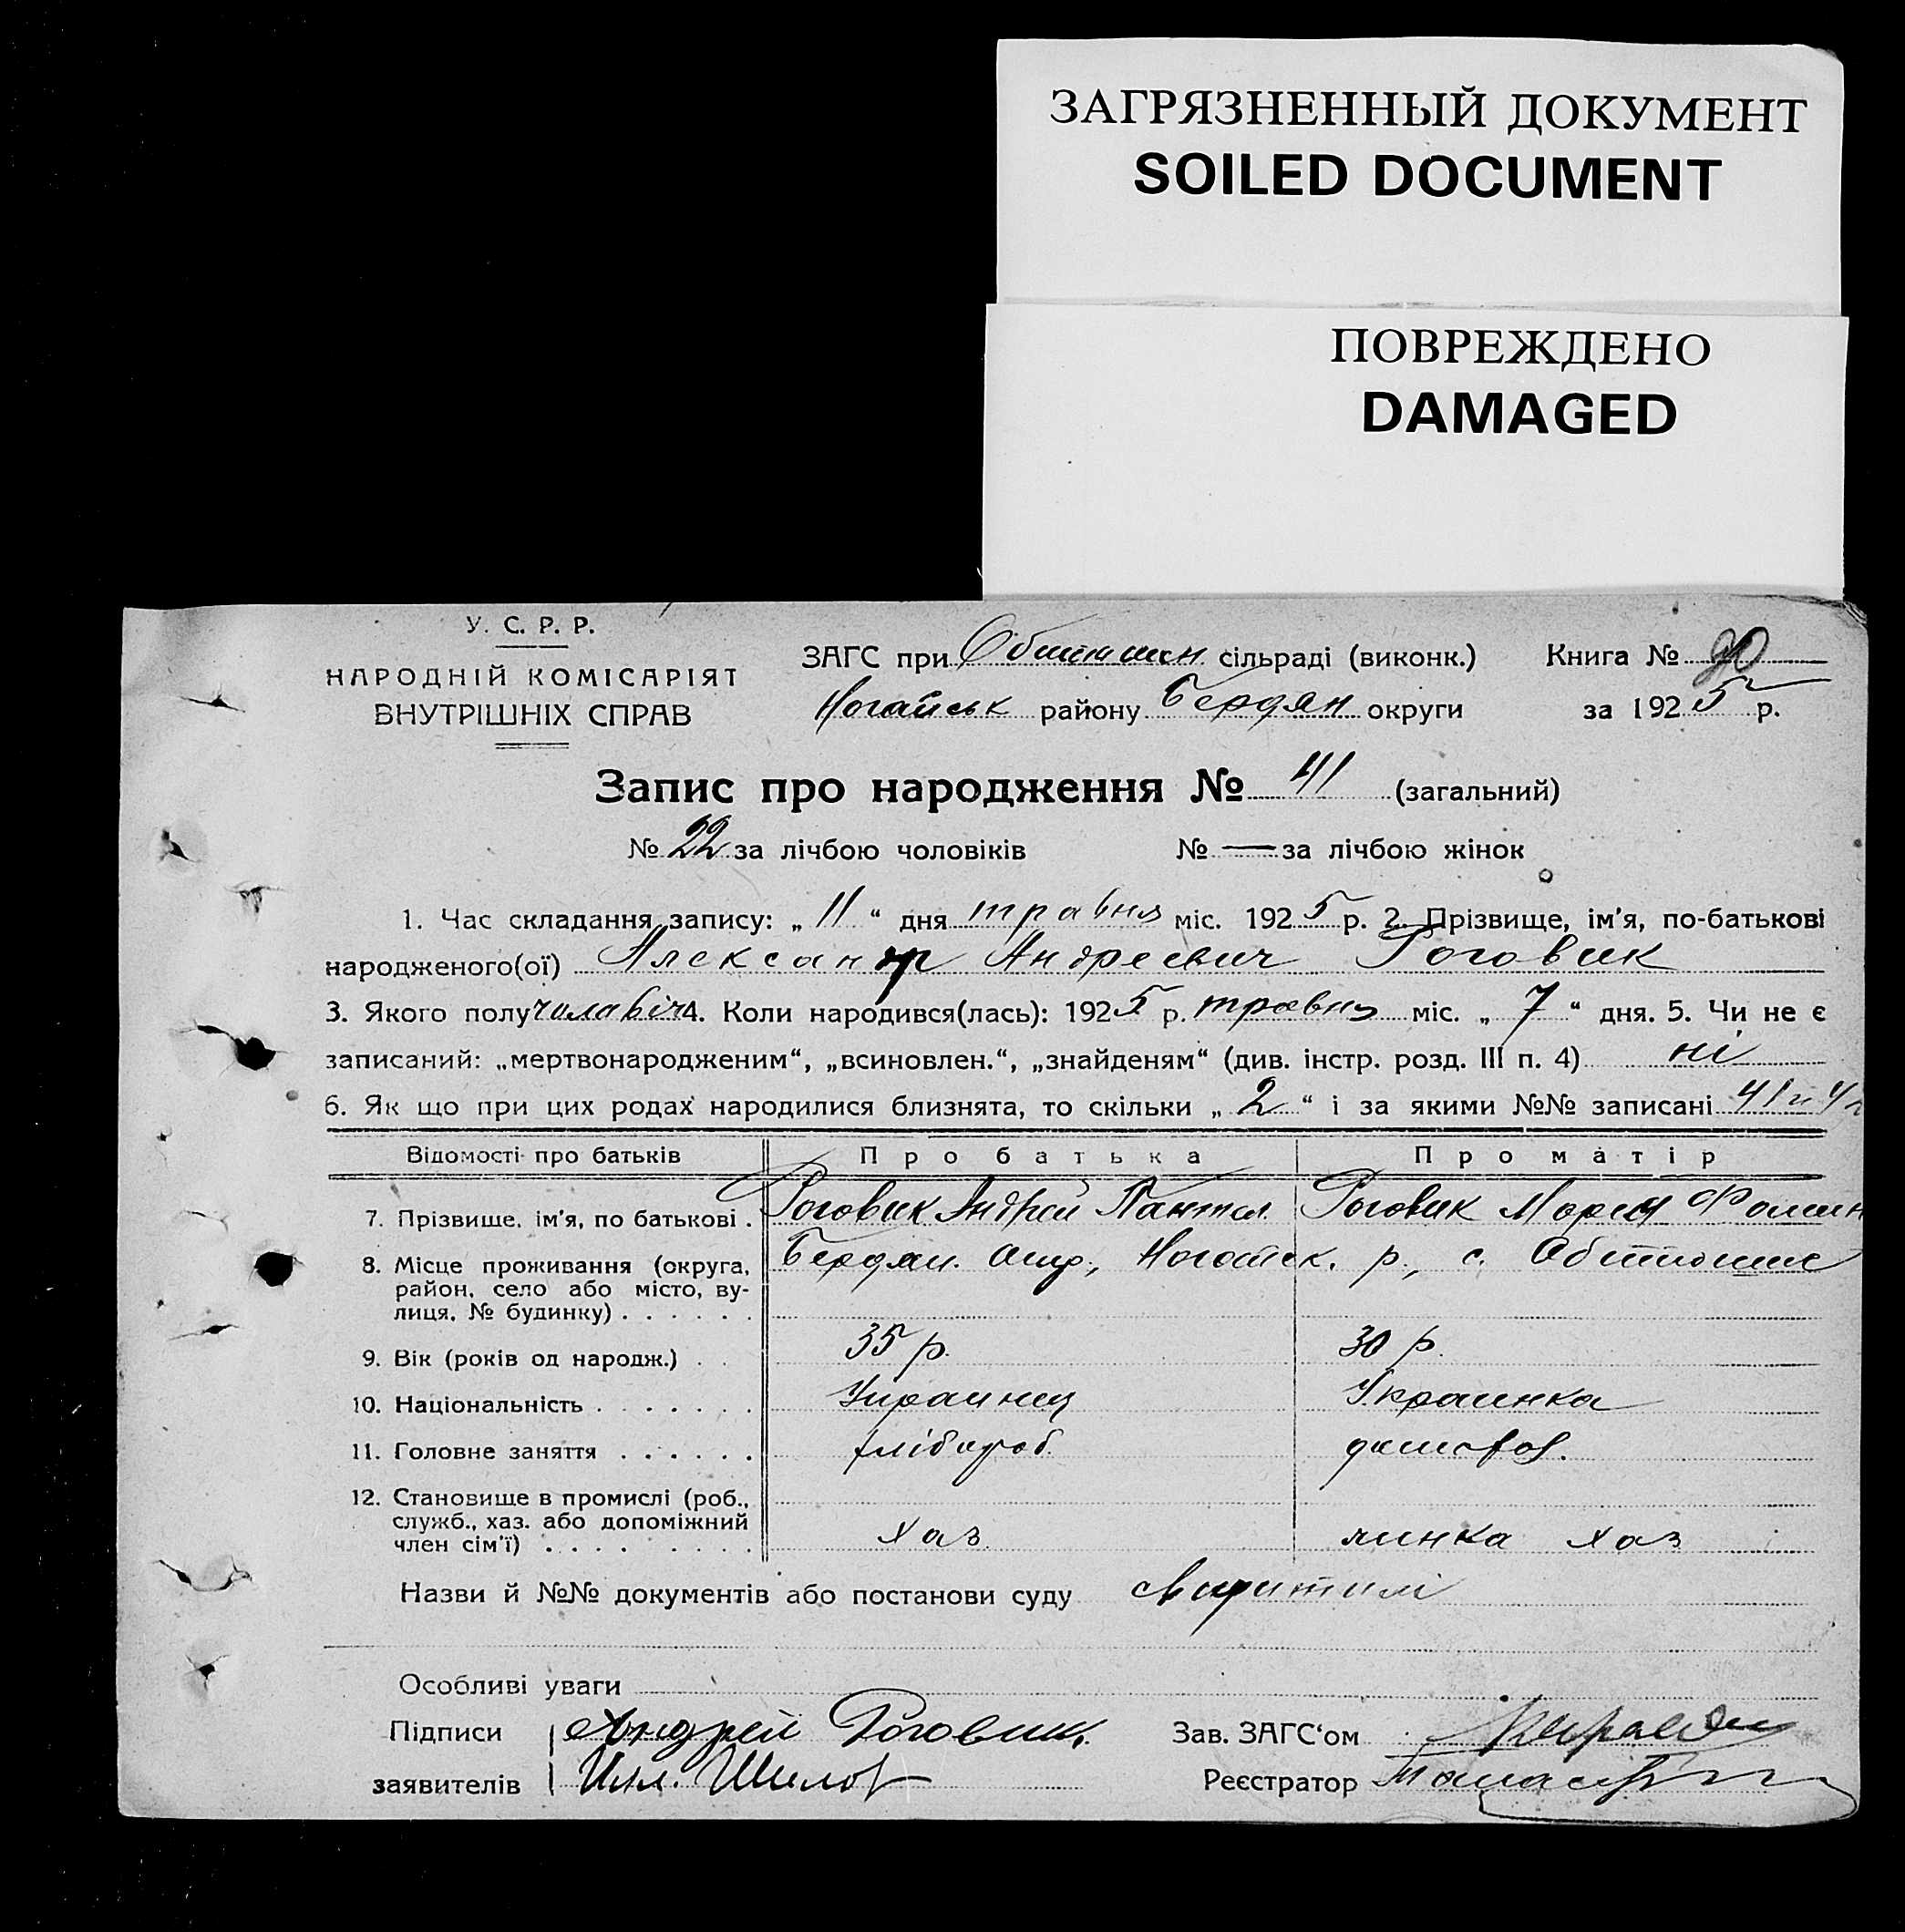 ЗАГРЯЗНЕННЫЙ ДОКУМЕНТ
SOILED DOCUMENT
ПОВРЕЖДЕНО
DAMAGED
У. С. Р. Р.
НАРОДНІЙ КОМІСАРІЯТ
ВНУТРІШНІХ СПРАВ
ЗАГС при сільраді (виконк.) Книга №
Ногайськ району Бердян округи за 1925 р.
Запис про народження № 41 (загальний)
№ 22 за лічбою чоловіків № — за лічбою жінок
1. Час складання запису: „ 11 “ дня травня міс. 1925 р. 2. Прізвище, ім'я, по-батькові
народженого(ої) Александр Андреевич Роговик
3. Якого полу чолавіч 4. Коли народився(лась): 1925 р. травня міс. „ 7 “ дня. 5. Чи не є
записаний: „мертвонародженим“, „всиновлен.“, „знайденям“ (див. інстр. розд. III п. 4) ні
6. Як що при цих родах народилися близнята, то скільки „ 2 “ і за якими №№ записані 41 и 42
Відомості про батьків Про батька Про матір
7. Прізвище, ім'я, по батькові . Роговик Андрей Пантел. Роговик Мария Фомин
8. Місце проживання (округа, Бердян. окр., Ногайск. р., с. Обиточне
район, село або місто, ву-
лиця, № будинку) . . . . . .
9. Вік (років од народж.) . . 35 р. 30 р.
10. Національність . . . . . . . Украинец Украинка
11. Головне заняття . . . . . . хлібороб. домогос.
12. Становище в промислі (роб.,
служб., хаз. або допоміжний
член сім'ї) . . . . . . . . . хаз. хаз
Назви й №№ документів або постанови суду
Особливі уваги
Підписи Андрей Роговик Зав. ЗАГС'ом
заявителів Шилов Реєстратор